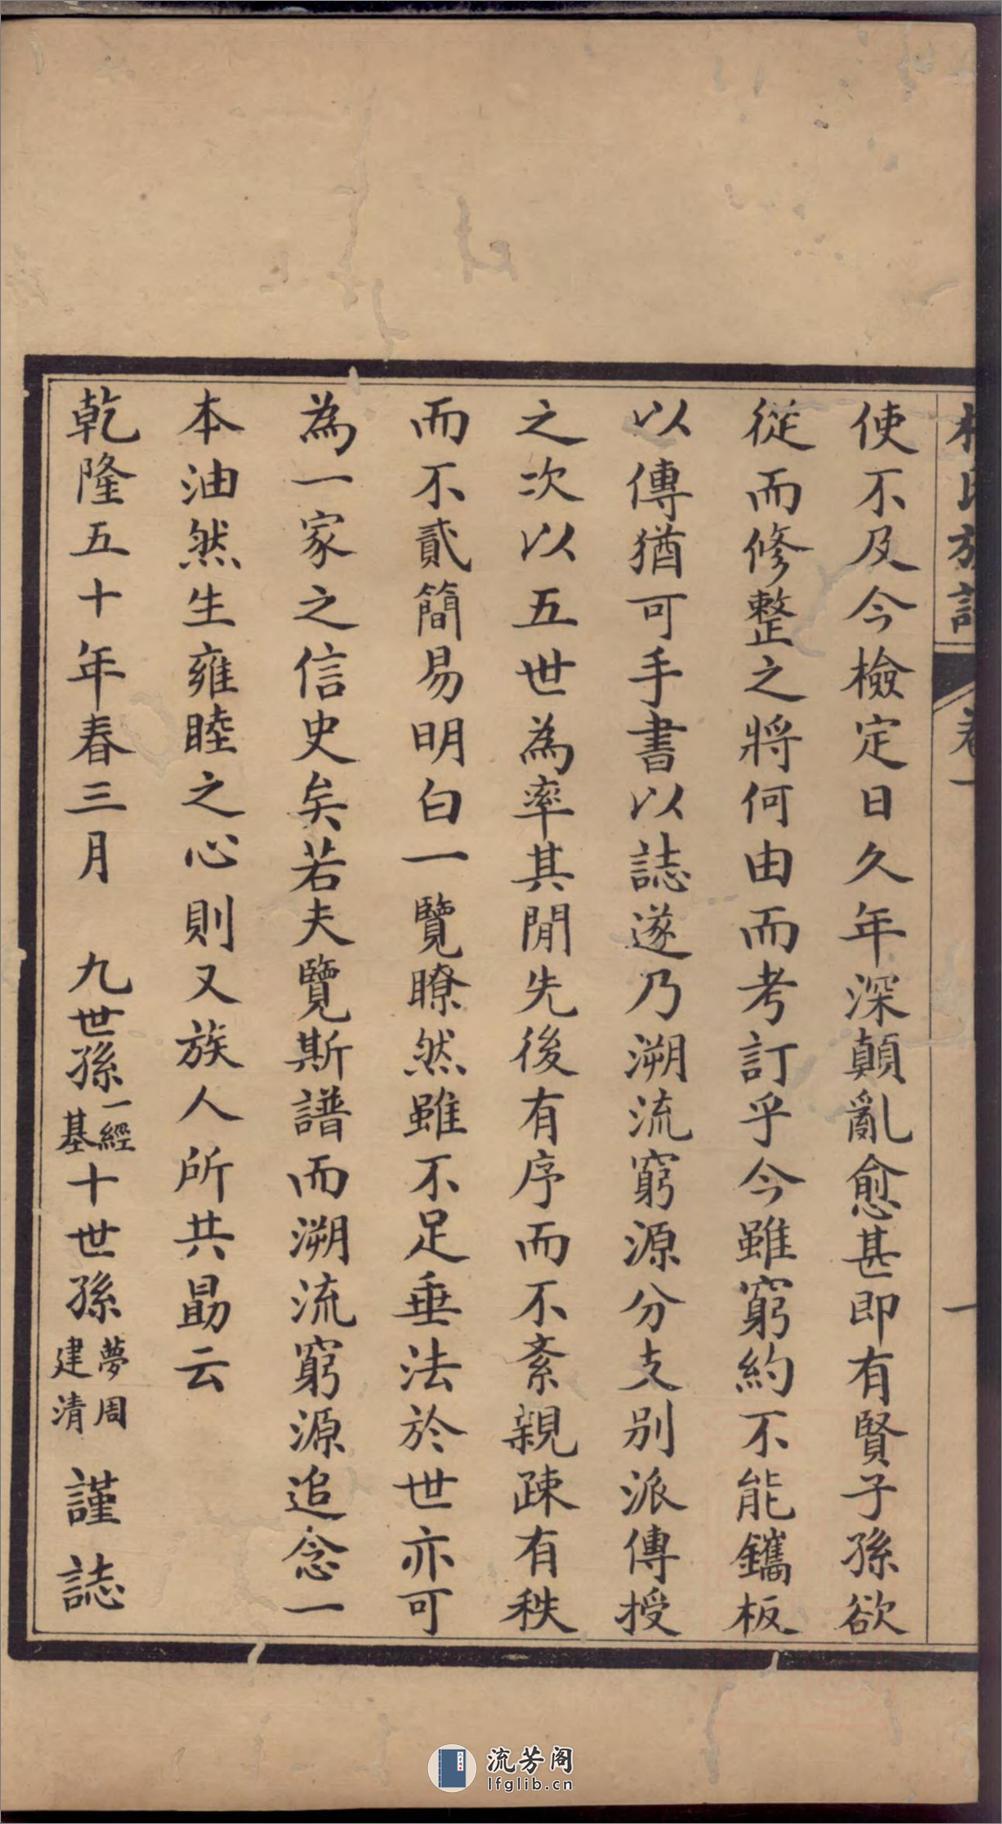 氏族
卷一
一
使不及今檢定日久年深顛亂愈甚即有賢子孫欲
從而修整之將何由而考訂乎今雖窮約不能鐫板
以傳猶可手書以誌遂乃溯流窮源分支別派傳授
之次以五世為率其閒先後有序而不紊親疎有秩
而不貳簡易明白一覽瞭然雖不足垂法於世亦可
為一家之信史矣若夫覽斯譜而溯流窮源追念一
本油然生雍睦之心則又族人所共勗云
乾隆五十年春三月 九世孫一經基十世孫夢周建清 謹誌
流芳阁
lfglib.cn